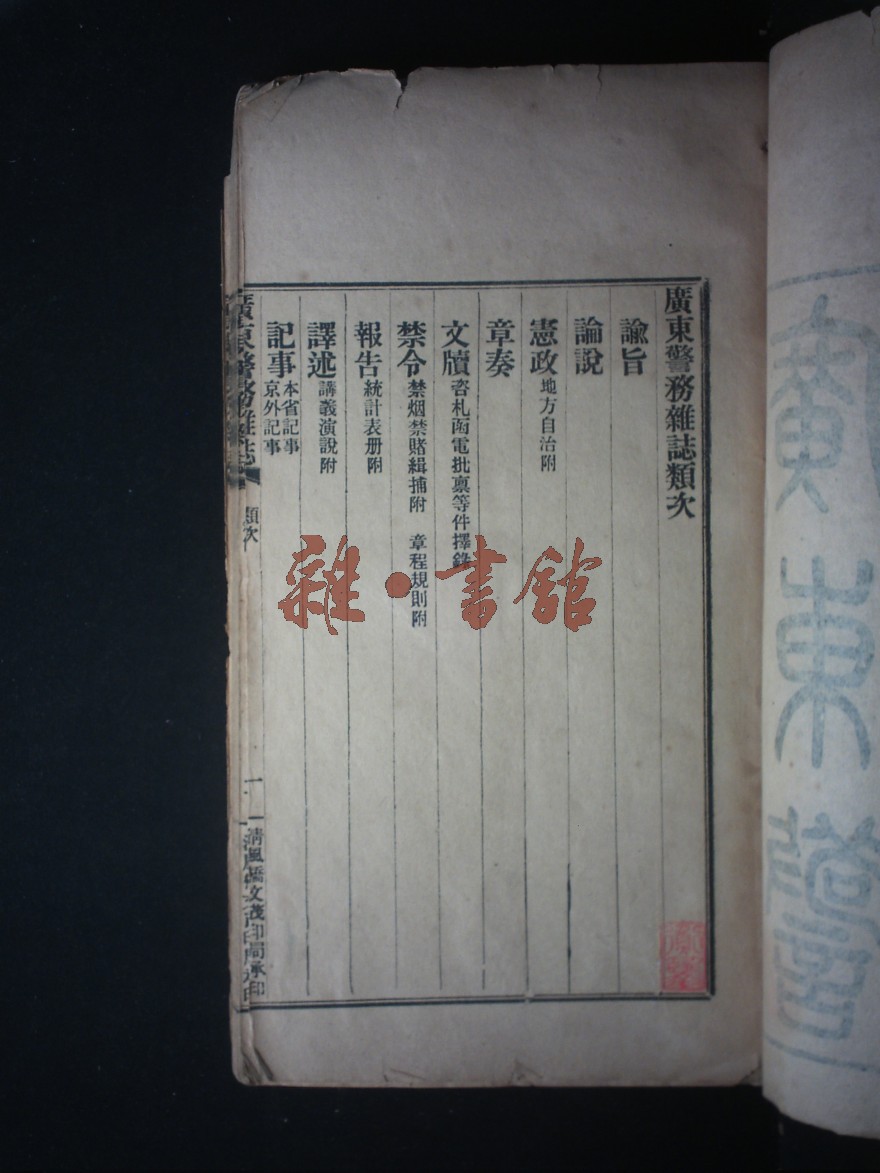 廣東警務雜誌類次
諭旨
論說
憲政 地方自治附
章奏
文牘 咨札函電批禀等件擇錄
禁令 禁烟禁賭緝捕附 章程規則附
報告 統計表册附
譯述 講義演說附
記事 本省記事
京外記事
廣東警務雜誌 類次 一 清風橋文茂印局承印
雜·書館
廣東